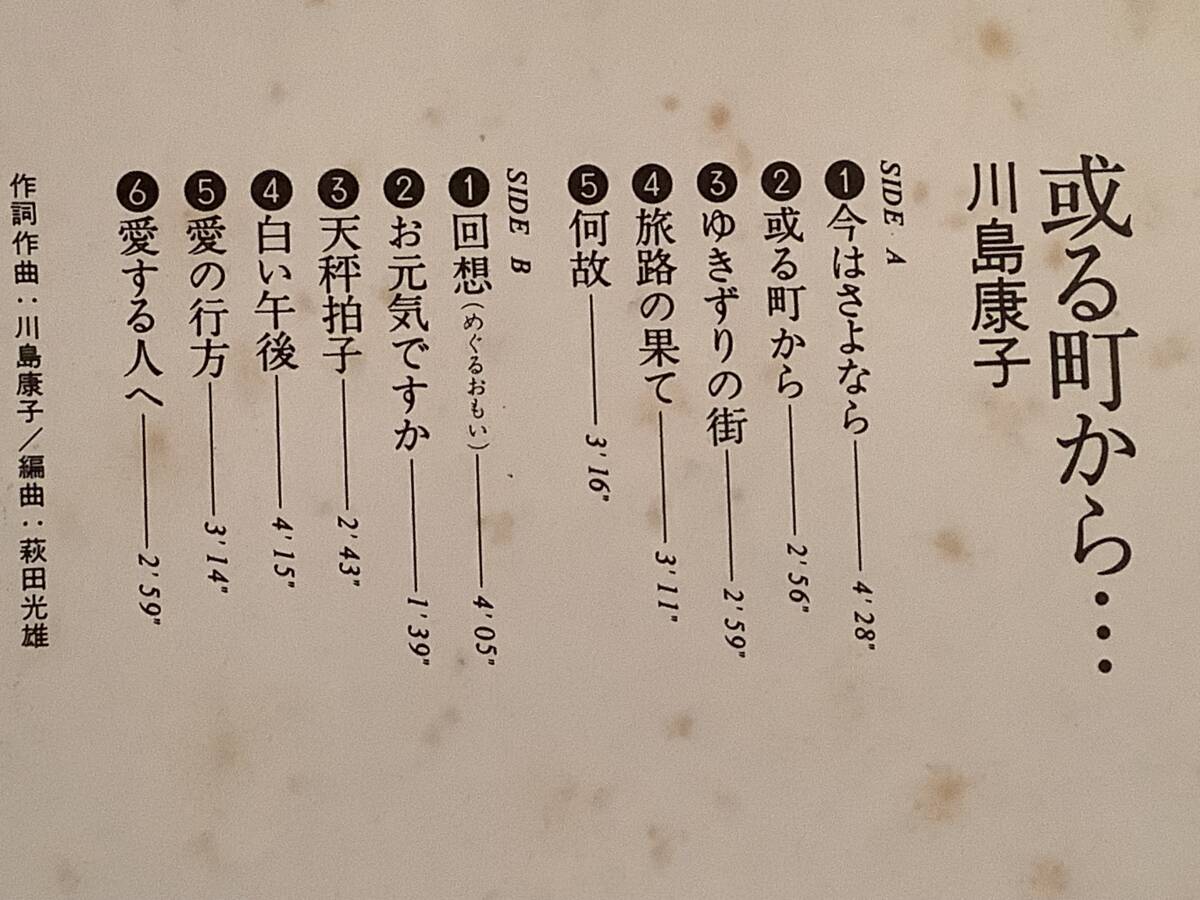 或る町から…
川島康子
SIDE A
❶今はさよなら——4'28"
❷或る町から——2'56"
❸ゆきずりの街——2'59"
❹旅路の果て——3'11"
❺何故——3'16"
SIDE B
❶回想(めぐるおもい)——4'05"
❷お元気ですか——1'39"
❸天秤拍子——2'43"
❹白い午後——4'15"
❺愛の行方——3'14"
❻愛する人へ——2'59"
作詞作曲:川島康子/編曲:萩田光雄